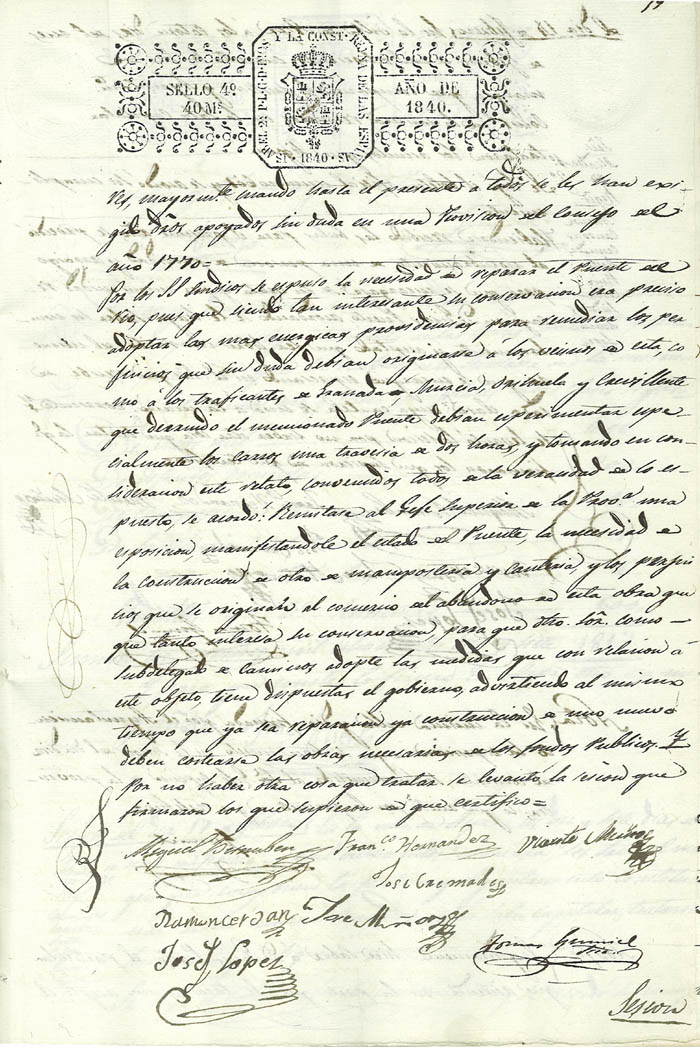 17
SELLO 4º
40 Mº
AÑO DE
1840.
ISABEL 2ª P. L. G. D. DIOS Y LA CONST. REINA DE LAS ESPAÑAS
·1840·
res, mayormte cuando hasta el presente a todos se les han exi-
gido dros apoyados sin duda en una Provision del Consejo del
año 1770=
Por los SS Sindicos se espuso la necesidad de reparar el Puente del
Rio, pues que siendo tan interesante su conservacion era preciso
adoptar las mas energicas providencias para remediar los per-
juicios que sin duda debian originarse á los vecinos de esta, co
mo á los traficantes de Granada, Murcia, Orihuela y Crevillente
que derruido el mencionado Puente debian esperimentar espe-
cialmente los carros una travesia de dos horas, y tomando en con-
sideracion este relato, convenidos todos de la veracidad de lo es-
puesto, se acordó: Remitase al Gefe Superior de la Provª una
esposicion, manifestandole el estado del Puente, la necesidad de
la construccion de otro de mamposteria y canteria, y los perjui
cios que se originan al comercio del abandono de esta obra que
que tanto interesa su conservacion, para que dho. Sor. como
Subdelegado de Caminos adopte las medidas que con relacion á
este objeto, tiene dispuestas el gobierno, advirtiendo al mismo
tiempo que ya sea reparacion ya construccion de uno nuevo
deben costearse las obras necesarias de los fondos Publicos. Y
Por no haber otra cosa que tratar se levantó la sesion que
firmaron los que supieron de que certifico=
Miguel Franco Hernandez Vicente Muñoz
Jose Cremades
Ramon Cerdan Jose Muñoz
Josef Lopez
Tomas
Sesion